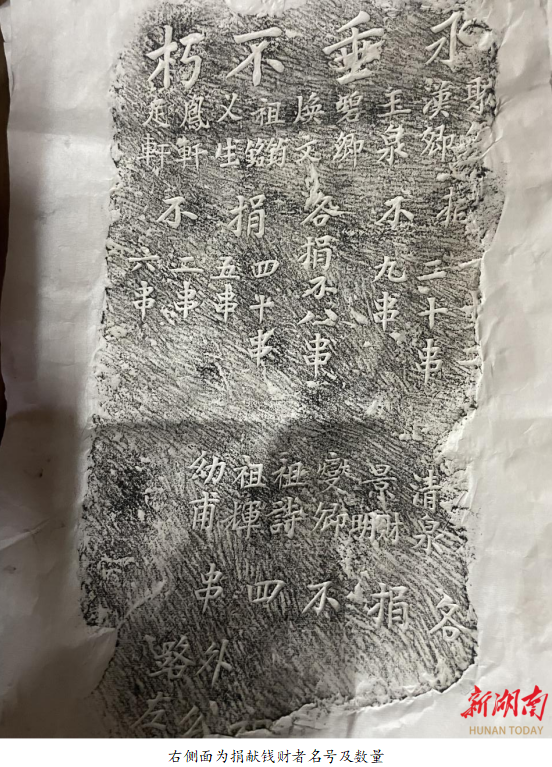 永垂不朽
漢卿 三十串
玉泉 不 九串
碧卿
煥文 各捐不八串
祖銘 捐 四千串
义生 五串
鳳軒 二串
軒 不 六串
清泉 各
景明財 捐
燮卿 不
祖詩
祖輝 四
幼甫 串
外
路左
新湖南
HUNAN TODAY
右侧面为捐献钱财者名号及数量